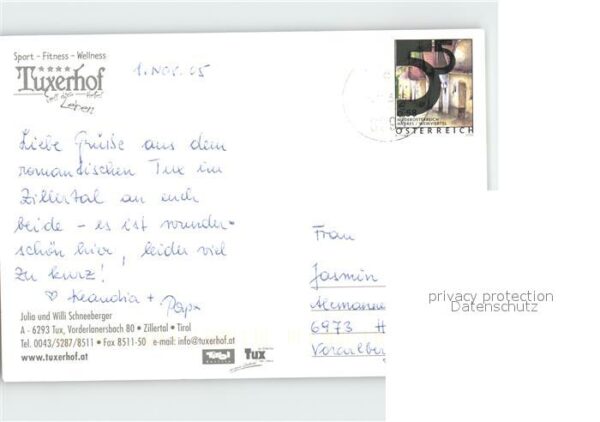 Sport - Fitness - Wellness
Tuxerhof
Leben
1. Nov. 05
55
0.58
NIEDERÖSTERREICH
ÖSTERREICH
Liebe Grüße aus dem
romantischen Tux im
Zillertal an euch
beide - es ist wunder-
schön hier, leider viel
zu kurz!
♡ Klaudia + Papa
Frau
Jasmin
Alemannen
6973 H
Vorarlber
privacy protection
Datenschutz
Julia und Willi Schneeberger
A - 6293 Tux, Vorderlanersbach 80 • Zillertal • Tirol
Tel. 0043/5287/8511 • Fax 8511-50 e-mail: info@tuxerhof.at
www.tuxerhof.at
Tirol
Tux